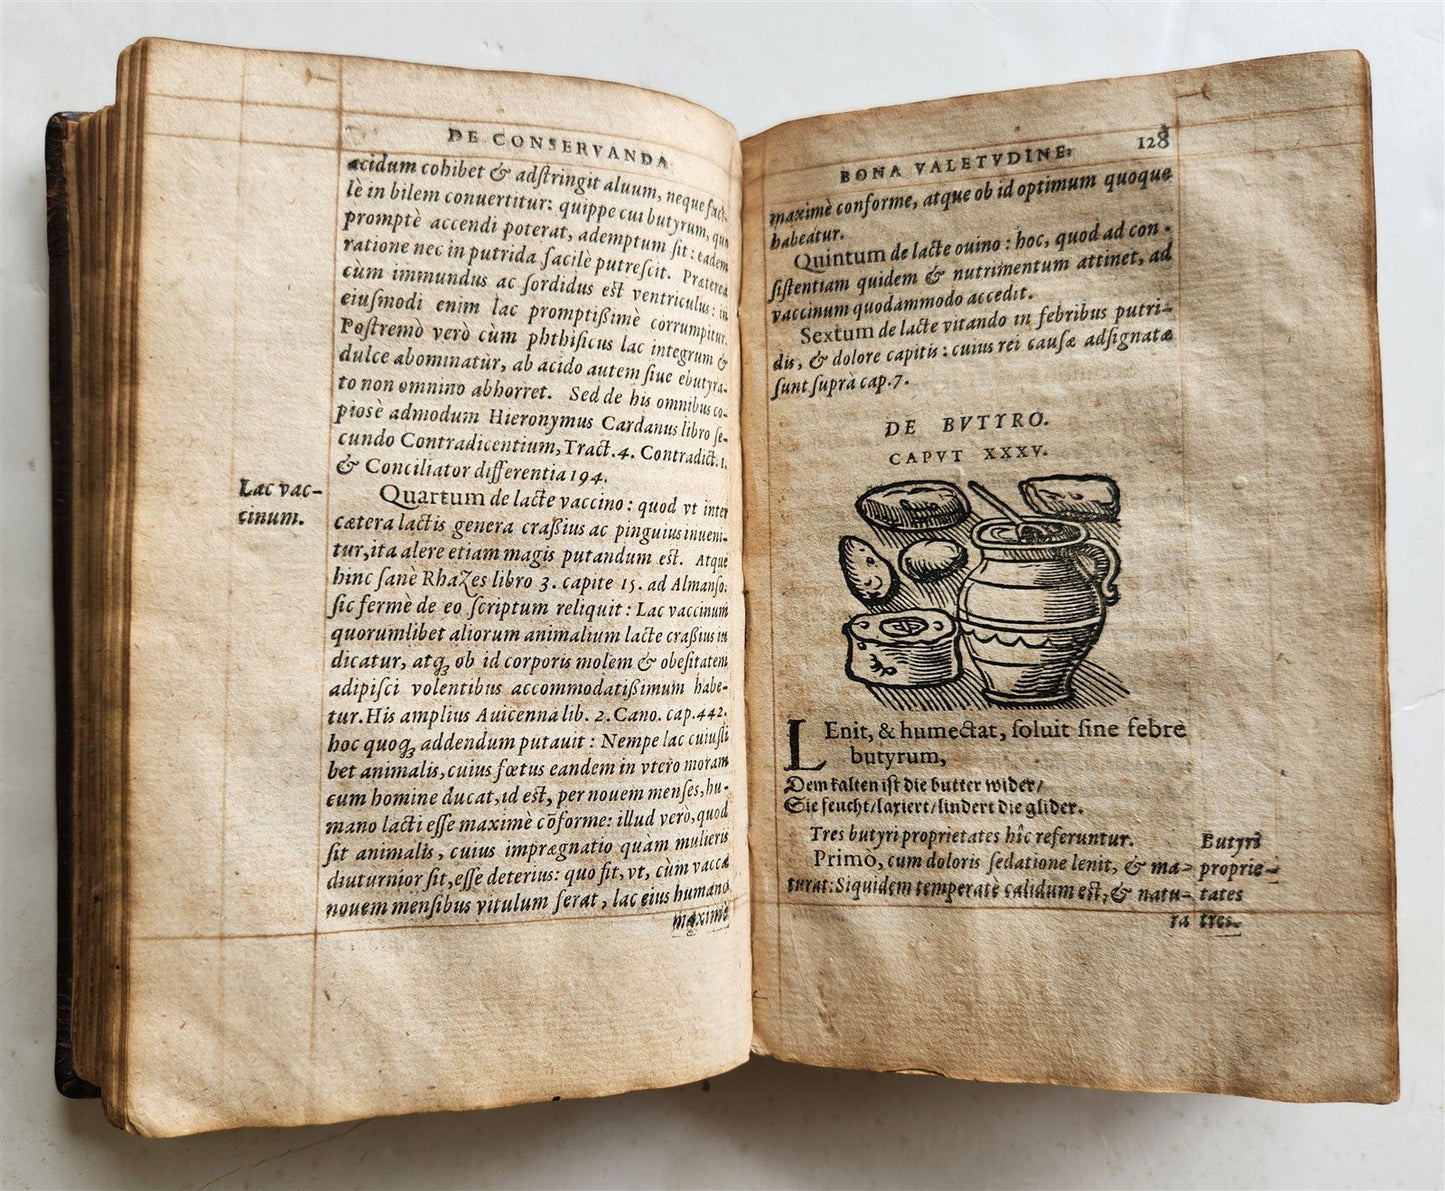 DE CONSERVANDA
acidum cohibet & adſtringit aluum, neque facilè in bilem conuertitur: quippe cui butyrum, quo
promptè accendi poterat, ademptum ſit: eadem
ratione nec in putrida facilè putreſcit. Præterea
cùm immundus ac ſordidus eſt ventriculus: in
eiuſmodi enim lac promptißimè corrumpitur.
Poſtremò verò cùm phthiſicus lac integrum &
dulce abominatur, ab acido autem ſiue ebutyra-
to non omnino abhorret. Sed de his omnibus co-
pioſè admodum Hieronymus Cardanus libro ſe-
cundo Contradicentium, Tract. 4. Contradict. 1.
& Conciliator differentia 194.
Lac vac-
cinum.
Quartum de lacte vaccino: quod vt inter
cætera lactis genera craßius ac pinguius inueni-
tur, ita alere etiam magis putandum eſt. Atque
hinc ſanè Rhazes libro 3. capite 15. ad Almanſo:
ſic fermè de eo ſcriptum reliquit: Lac vaccinum
quorumlibet aliorum animalium lacte craßius in
dicatur, atq; ob id corporis molem & obeſitatem
adipiſci volentibus accommodatißimum habe-
tur. His amplius Auicenna lib. 2. Cano. cap. 442.
hoc quoq; addendum putauit: Nempe lac cuiuſli
bet animalis, cuius fœtus eandem in vtero moram
cum homine ducat, id eſt, per nouem menſes, hu-
mano lacti eſſe maximè cōforme: illud verò, quod
ſit animalis, cuius imprægnatio quàm mulieris
diuturnior ſit, eſſe deterius: quo fit, vt, cùm vacca
nouem menſibus vitulum ferat, lac eius humano
maximè
BONA VALETVDINE. 128
maximè conforme, atque ob id optimum quoque
habeatur.
Quintum de lacte ouino: hoc, quod ad con-
ſiſtentiam quidem & nutrimentum attinet, ad
vaccinum quodammodo accedit.
Sextum de lacte vitando in febribus putri-
dis, & dolore capitis: cuius rei cauſæ adſignatæ
ſunt ſuprà cap. 7.
DE BVTYRO.
CAPVT XXXV.
LEnit, & humectat, ſoluit ſine febre
butyrum,
Dem kalten iſt die butter wider/
Sie feucht/lariert/lindert die glider.
Tres butyri proprietates hîc referuntur.
Primò, cum doloris ſedatione lenit, & ma-
turat: Siquidem temperatè calidum eſt, & natu-
ra
Butyri
proprie-
tates
tres.